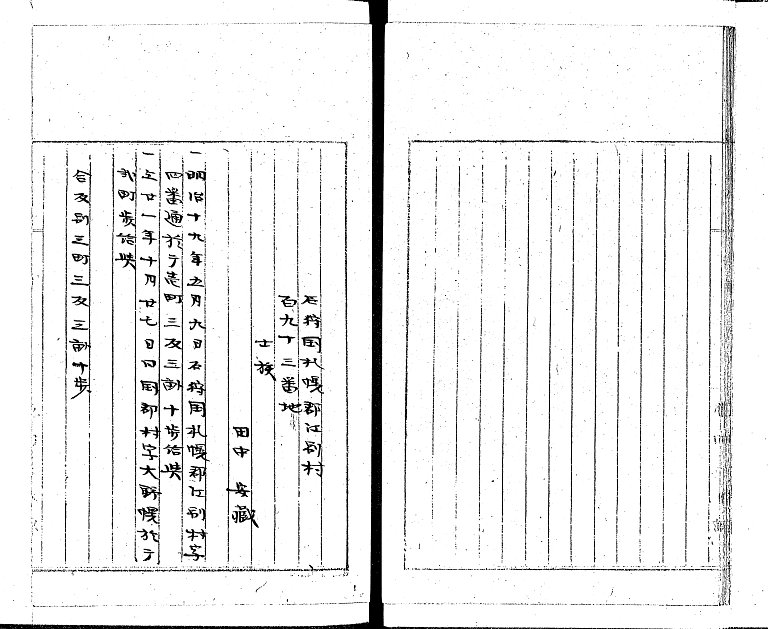 石狩国札幌郡江別村
百九十三番地
士族
田中 安藏
一明治十九年五月九日石狩国札幌郡江別村字
四番通於テ壱町三反三畝十歩給與
一仝廿一年十月廿七日同国郡村字大野幌於テ
弐町歩給與
合反別三町三反三畝十歩